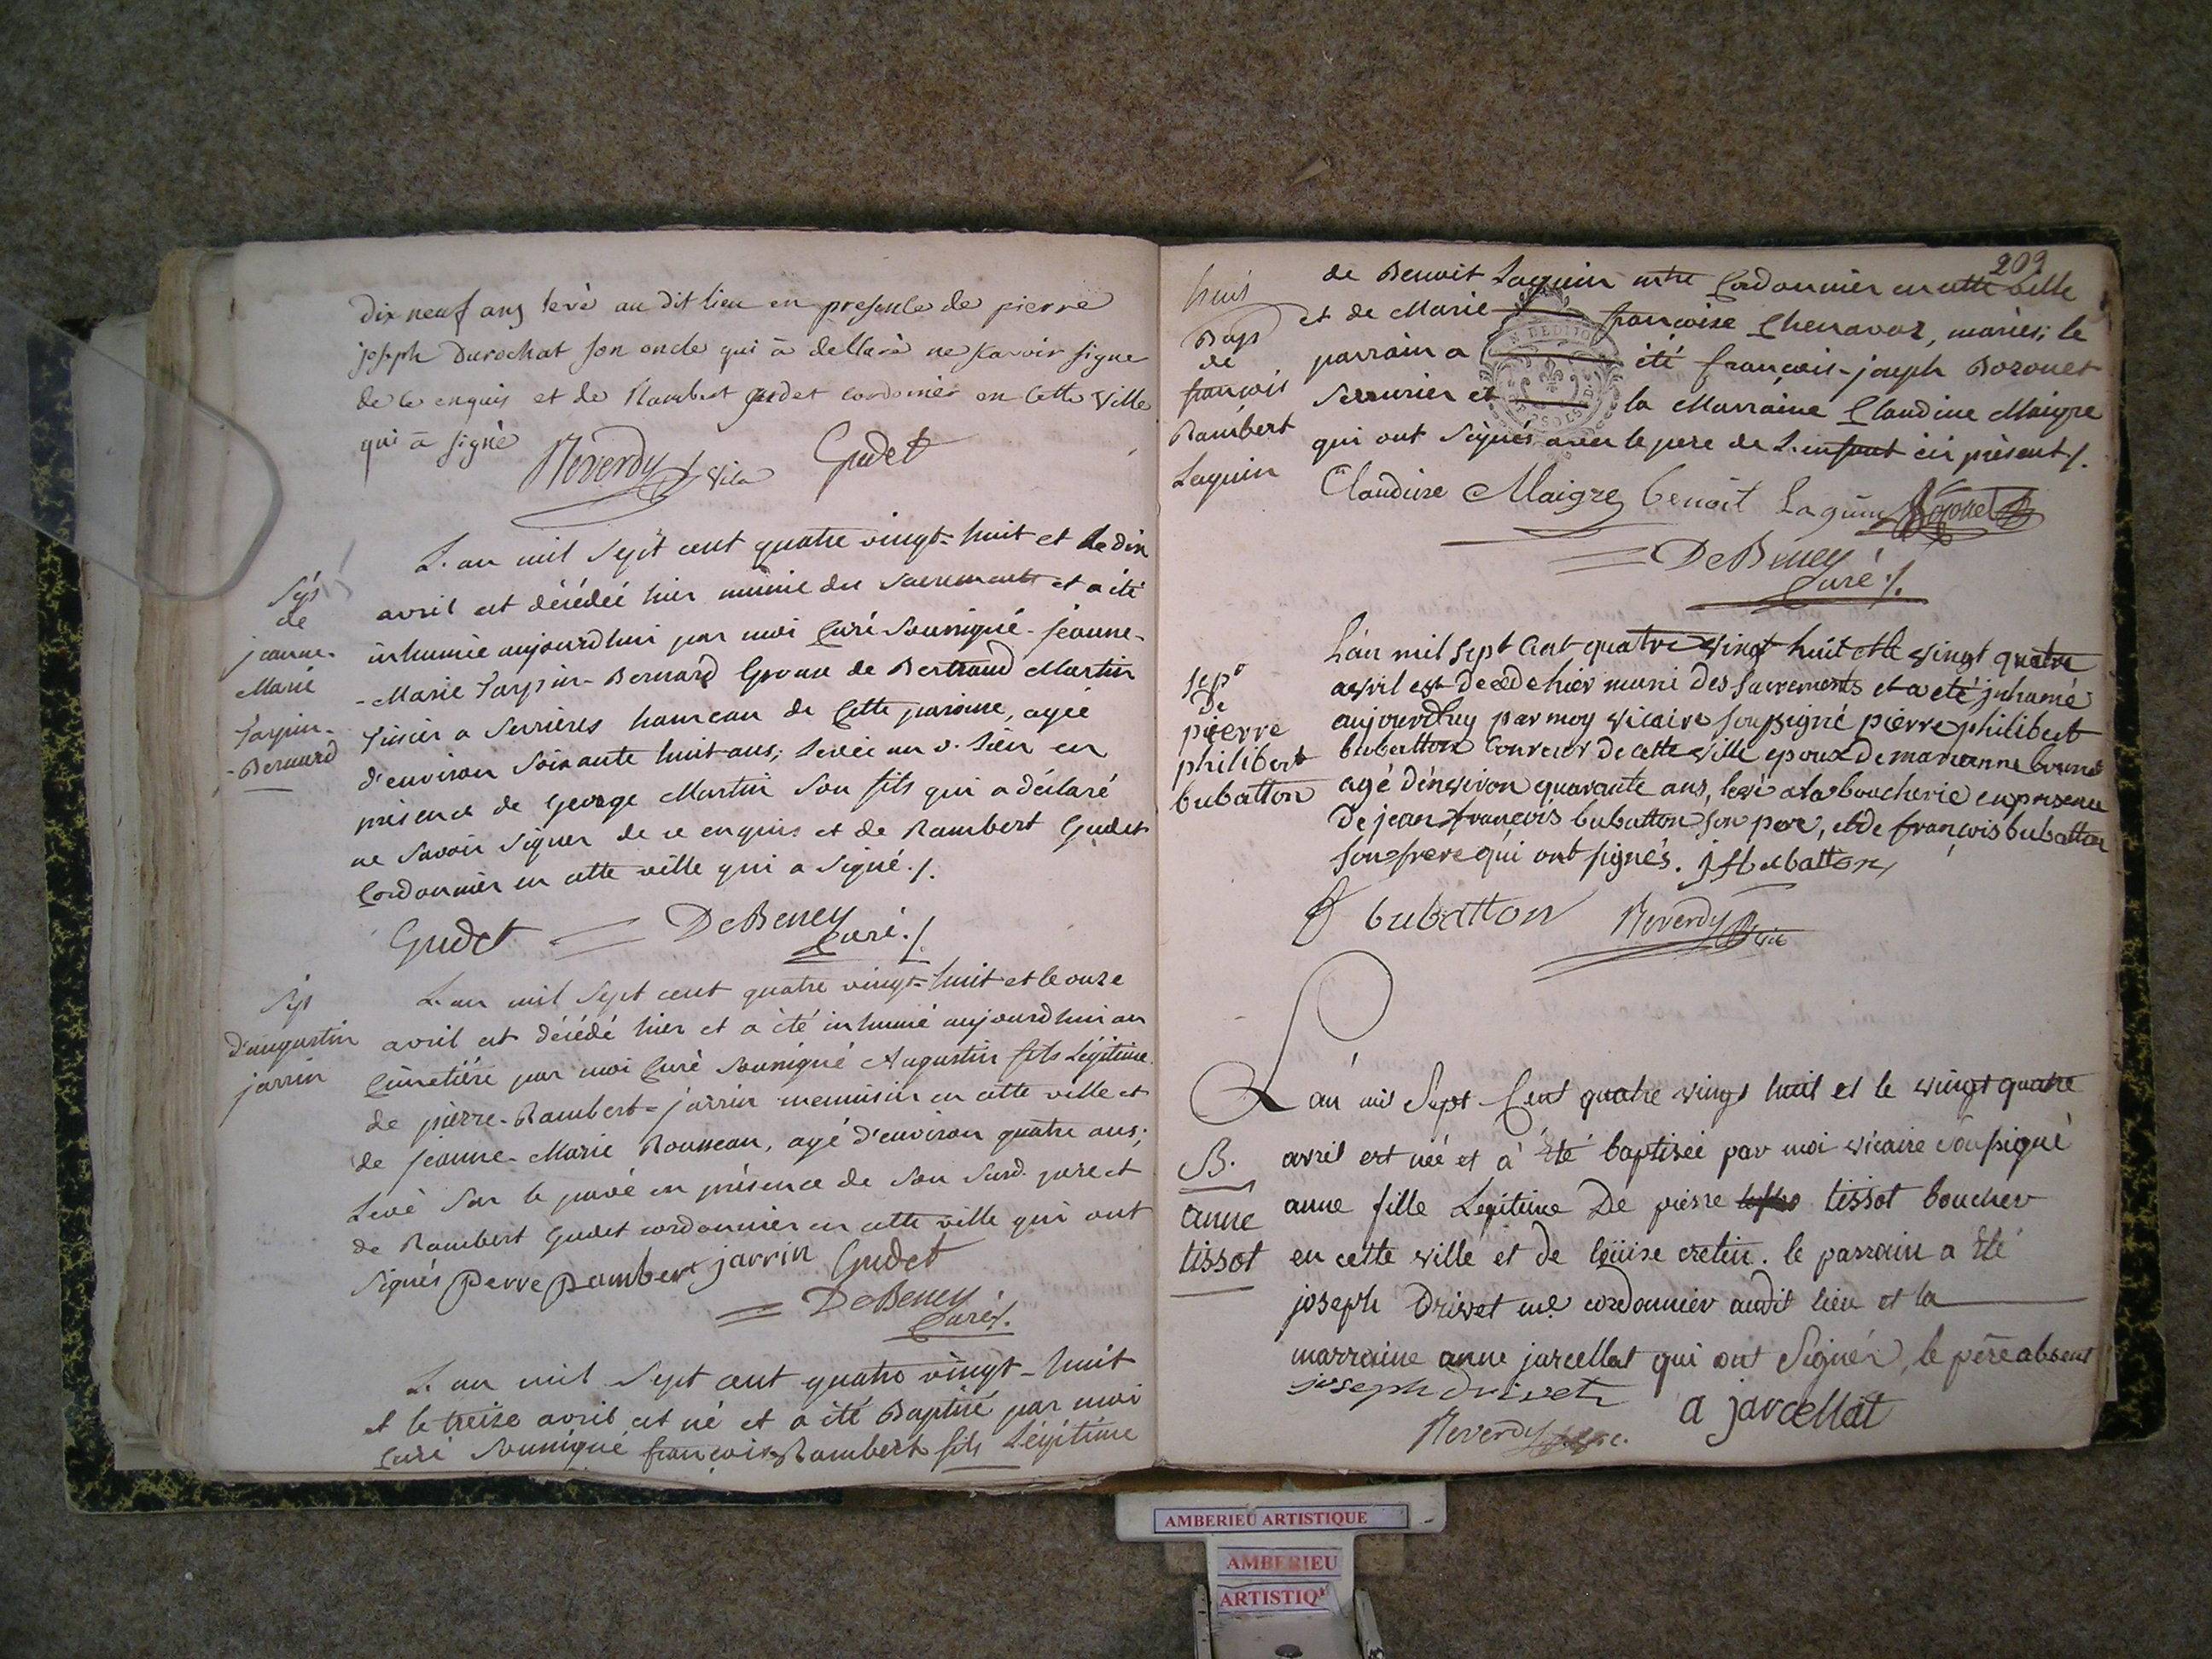 dix neuf ans levé au dit lieu en presence de pierre
joseph Durochat son oncle qui à declaré ne scavoir signe
de ce enquis et de Rambert gudet cordonier en cette ville
qui à signé
Reverdy vica Gudet
Sép
de
jeanne-
Marie
Tarpin-
-Bernard
L'an mil sept cent quatre vingt-huit et le dix
avril est décédée hier munie des sacrements et a été
inhumée aujourdhui par moi Curé soussigné jeanne-
-Marie Tarpin-Bernard de Bertrand Martin
a Serrières hameau de cette paroisse, agée
d'environ soixante huit ans; levée au d. lieu en
présence de George Martin son fils qui a déclaré
ne savoir signer de ce enquis et de Rambert Gudet
Cordonnier en cette ville qui a signé./.
Gudet DeBeney
Curé./.
Sép
d'augustin
jarrin
L'an mil sept cent quatre vingt-huit et le onze
avril est décédé hier et a été inhumé aujourdhui au
Cimetière par moi Curé soussigné Augustin fils Légitime
de pierre-Rambert-jarrin menuisier en cette ville et
de jeanne-Marie Rousseau, agé d'environ quatre ans;
Levé sur le pavé en présence de son susd. pere et
de Rambert Gudet cordonnier en cette ville qui ont
signés pierre Rambert jarrin Gudet
DeBeney
Curé/.
L'an mil sept cent quatre vingt-huit
et le treize avril est né et a été Baptisé par moi
Curé soussigné françois-Rambert fils Légitime
209
Bap
de
françois
Rambert
Laguin
de Benoit Laguin mtre Cordonnier en cette ville
et de Marie françoise Chenavaz, mariés; le
parrain a été françois-joseph Bozonet
Serrurier et la Marraine Claudine Maigre
qui ont signés avec le pere de L'enfant ici présent/.
Claudine Maigre benoit Laguin Bozonet
DeBeney
Curé./.
sep
de
pierre
philibert
bubatton
L'an mil sept cent quatre vingt huit et le vingt quatre
avril est decede hier muni des sacrements et a eté jnhumé
aujourdhuy par moy vicaire soussigné pierre philibert
bubatton de cette ville epoux de marianne
agé d'environ quarante ans, levé a la boucherie en presence
de jean françois bubatton son pere, et de françois bubatton
son frere qui ont signés. jf bubatton
f bubatton Reverdy vic
B.
anne
tissot
L'an mil sept Cent quatre vingt huit et le vingt quatre
avril est née et à été baptisée par moi vicaire soussigné
anne fille Legitime De pierre tissot boucher
en cette ville et de loüise cretin. le parrain a été
joseph Drivet me cordonnier audit lieu et la
marraine anne jarcellat qui ont signés, le père absent
joseph drivet
a jarcellat
Reverdy vic.
AMBERIEU ARTISTIQUE
AMBERIEU
ARTISTIQ